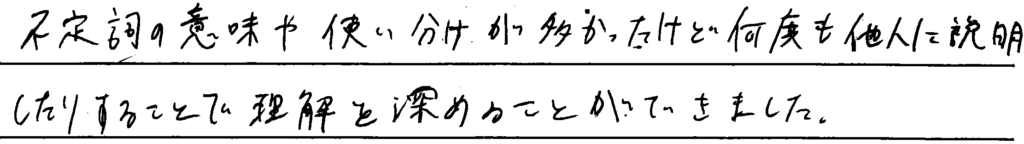 不定詞の意味や使い分けが多かったけど何度も他人に説明
したりすることで理解を深めることができました。